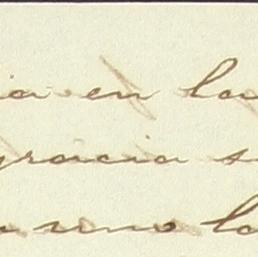 ia en la
gracia s
a uno la